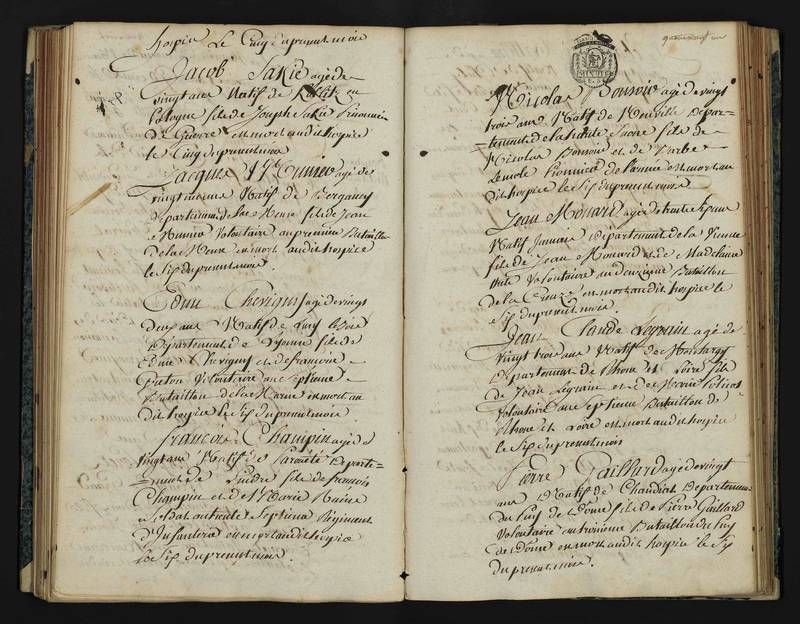 hospice Le Cinq du present mois
Jacob Sakie agé de
vingt ans Natif de en
Pologne fils de Joseph Sakie Prisonnier
De Guerre est mort audit hospice
le Cinq du present mois
Jacques Munier agé de
vingt un ans Natif de
departement de la Meuse fils de Jean
Munier Volontaire au premier Bataillon
de la Meuse est mort audit hospice
le Six du present mois.
Edme Chevigny agé de vingt
deux ans Natif de Lucy le Bois
Departement de Lyonne fils de
Edme Chevigny et de francoise
Volontaire au Septieme
Bataillon de la Marne est mort au
dit hospice le Six du present mois
francois Champin agé de
vingt ans Natif de Departe-
ment de Lindre fils de francois
Champin et de Marie
Soldat au trente Septieme Regiment
D'Infanterie est mort audit hospice
le Six du present mois.
Nicolas Bonvoir agé de vingt
trois ans Natif de Neuville Depar-
tement de la haute Saone fils de
Nicolas Bonvoir et de Barbe
Pionnier de l'armée est mort au
dit hospice le Six du present mois
Jean Monard agé de trente
Natif Departement de la Vienne
fils de Jean Monard et de Madelaine
Volontaire au deuxieme Bataillon
de la Creuze est mort audit hospice le
Six du present mois.
Jean Claude Legrain agé de
vingt trois ans Natif de
Departement de Rhone et Loire fils
de Jean Legrain et de Marie
Volontaire au Septieme Bataillon de
Rhone et Loire est mort audit hospice
le Six du present mois
Pierre Gaillard agé de vingt
ans Natif de Departement
du Puy de Dôme fils de Pierre Gaillard
Volontaire au troisieme Bataillon du Puy
de Dôme est mort audit hospice le Six
du present mois.